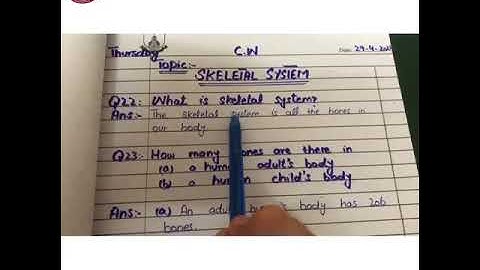 Thursday C.W Date: 29-4-202
Topic:-
SKELETAL SYSTEM
Q22: What is skeletal system?
Ans:- The skeletal system is all the bones in
our body
Q23: How many bones are there in
(a) a human adult's body
(b) a human child's body
Ans:- (a) An adult body has 206
bones.